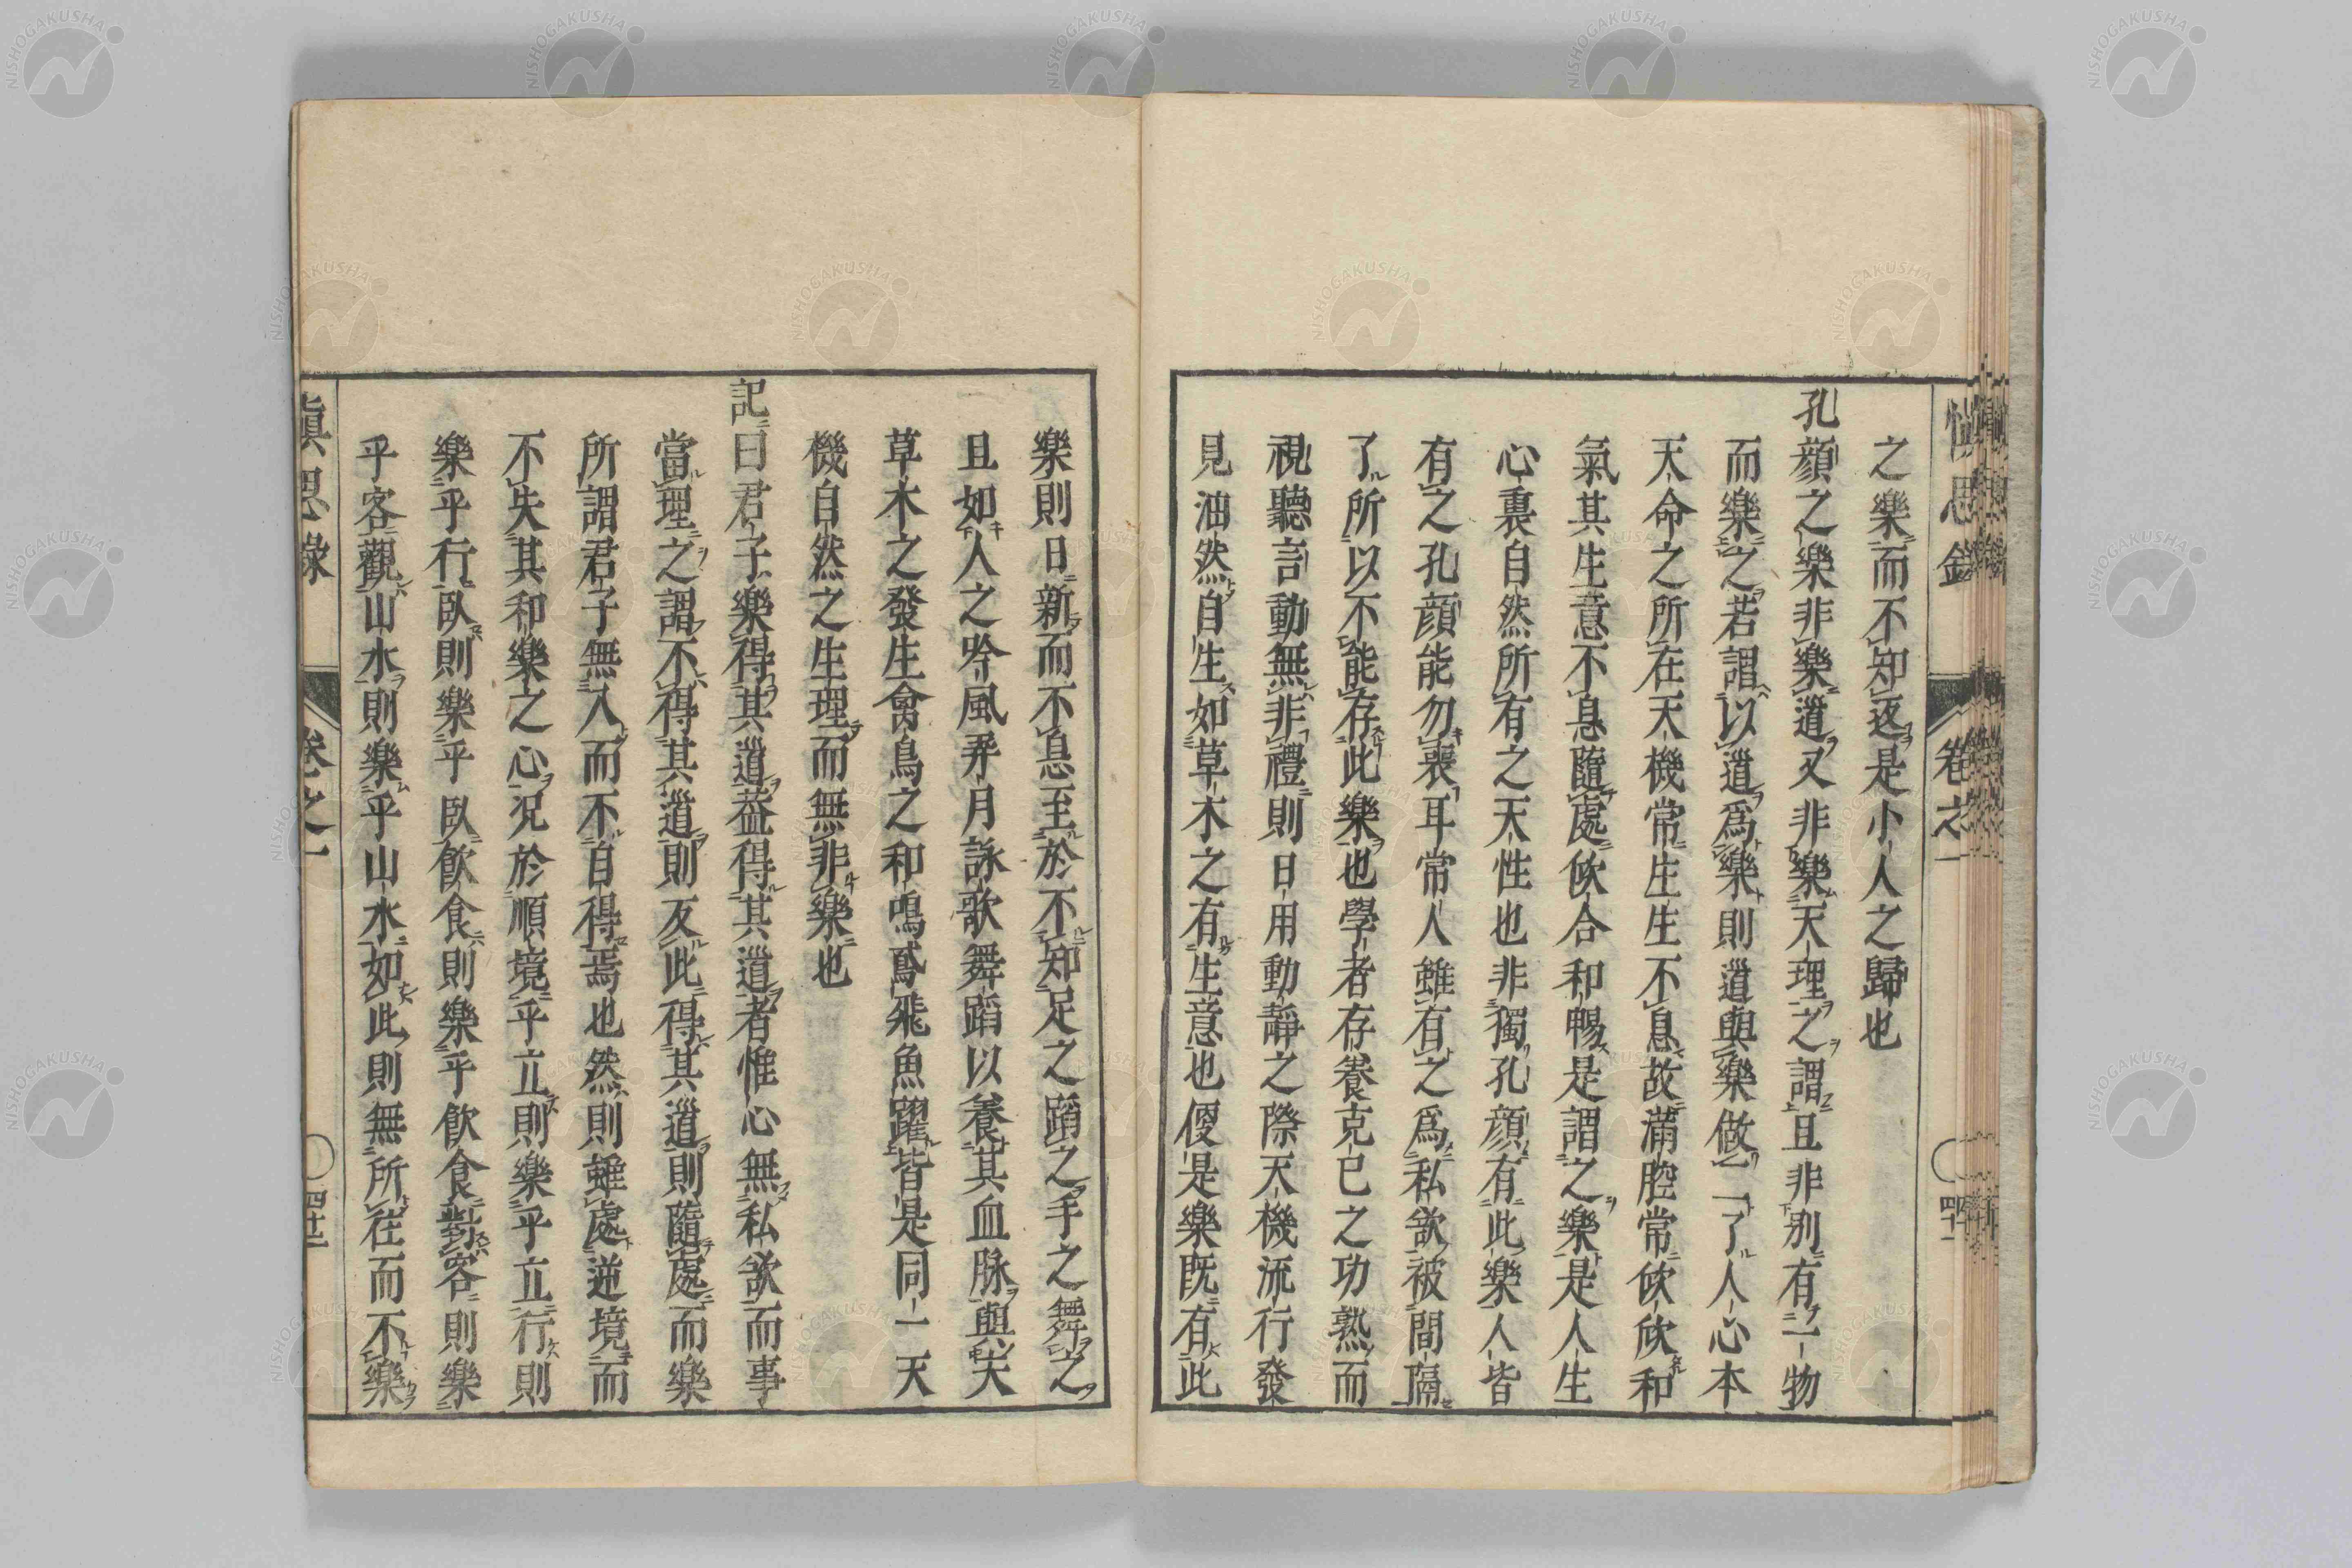 愼思錄
卷之一
四十一
之樂而不知返是小人之歸也
孔顔之樂非樂道又非樂天理之謂且非別有一物
而樂之若謂以道爲樂則道與樂做一了人心本
天命之所在天機常生生不息故滿腔常欣欣和
氣其生意不息隨處欣合和暢是謂之樂是人生
心裏自然所有之天性也非獨孔顔有此樂人皆
有之孔顔能勿喪耳常人雖有之爲私欲被間隔
了所以不能存此樂也學者存養克己之功熟而
視聽言動無非禮則日用動靜之際天機流行發
見油然自生如草木之有生意也便是樂既有此
樂則日新而不息至於不知足之蹈之手之舞之
且如人之吟風弄月詠歌舞蹈以養其血脉與夫
草木之發生禽鳥之和鳴鳶飛魚躍皆是同一天
機自然之生理而無非樂也
記曰君子樂得其道葢得其道者惟心無私欲而事
當理之謂不得其道則反此得其道則隨處而樂
所謂君子無入而不自得焉也然則雖處逆境而
不失其和樂之心況於順境乎立則樂乎立行則
樂乎行臥則樂乎臥飮食則樂乎飮食對客則樂
乎客觀山水則樂乎山水如此則無所往而不樂
愼思錄
卷之一
四十二
NISHOGAKUSHA